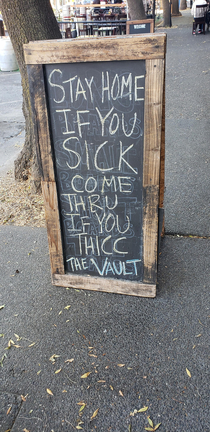 STAY HOME
IF YOU
SICK
COME
THRU
IF YOU
THICC
THE VAULT